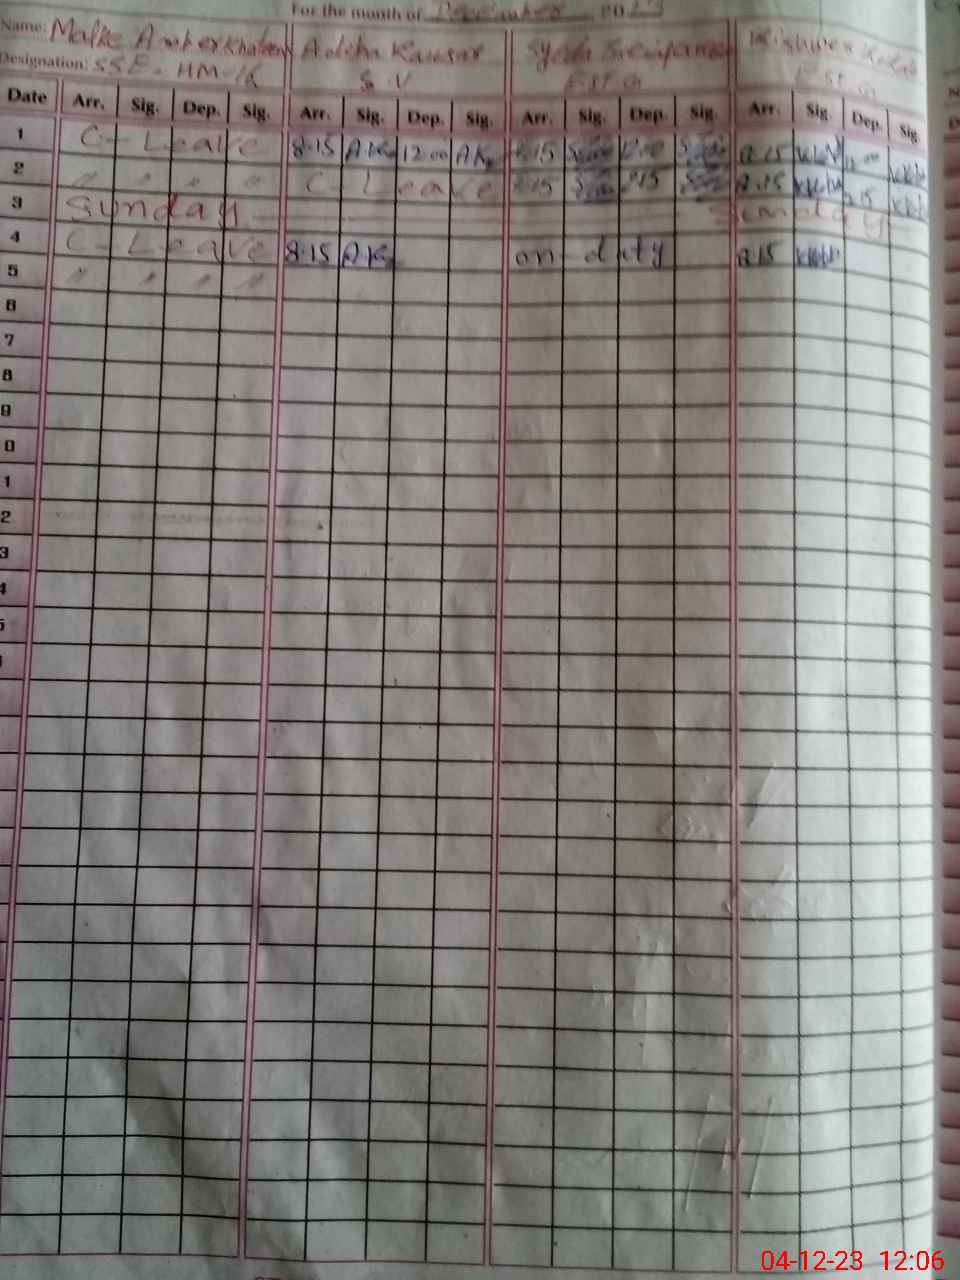 For the month of December 2023
Name: Malke Amber Khatoon Adsha Kausar Syeda Kishwer
Designation: SSE- HM-1K S.V EST.G EST.G
Date Arr. Sig. Dep. Sig. Arr. Sig. Dep. Sig. Arr. Sig. Dep. Sig. Arr. Sig. Dep. Sig.
1 C- Leave 8.15 A.K 12.00 A.K 8.15 12.00 8.15 12.00
2 〃 〃 〃 〃 C- Leave 8.15 8.15
3 Sunday Sunday
4 C- Leave 8.15 A.K on duty 8.15
5 〃 〃 〃 〃
6
7
8
9
0
1
2
3
4
5
04-12-23 12:06